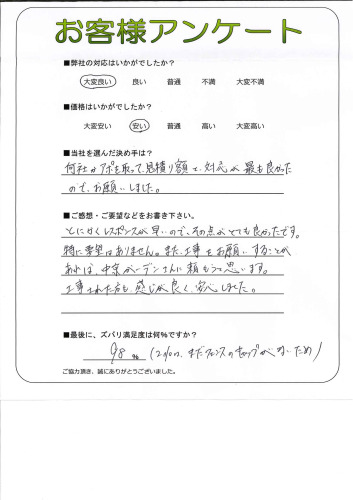 お客様アンケート
■弊社の対応はいかがでしたか？
大変良い 良い 普通 不満 大変不満
■価格はいかがでしたか？
大変安い 安い 普通 高い 大変高い
■当社を選んだ決め手は？
何社かアポを取って、見積り額と、対応が最も良かった
ので、お願いしました。
■ご感想・ご要望などをお書き下さい。
とにかくレスポンスが早いので、その点がとても良かったです。
特に要望はありません。また、工事をお願いすることが
あれば、中京ガーデンさんに頼もうと思います。
工事された方も、感じが良く、安心しました。
■最後に、ズバリ満足度は何%ですか？
98 % (2%は、まだフェンスのキャップがないため)
ご協力頂き、誠にありがとうございました。